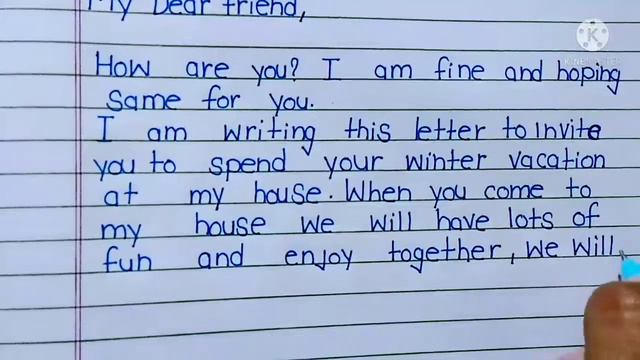 My Dear friend,
How are you? I am fine and hoping
same for you.
I am writing this letter to invite
you to spend your winter vacation
at my house. When you come to
my house we will have lots of
fun and enjoy together, we will